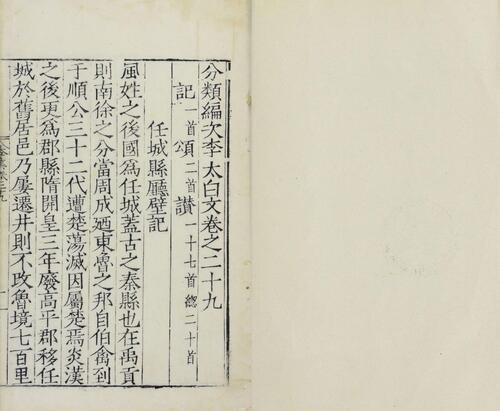 分類編次李太白文卷之二十九
記一首頌二首讃一十七首總二十首
任城縣廳壁記
風姓之後國為任城蓋古之秦縣也在禹貢
則南徐之分當周成廼東魯之邦自伯禽到
于順公三十二代遭楚蕩滅因屬楚焉炎漢
之後更為郡縣隋開皇三年廢高平郡移任
城於舊居邑乃屢遷井則不改魯境七百里